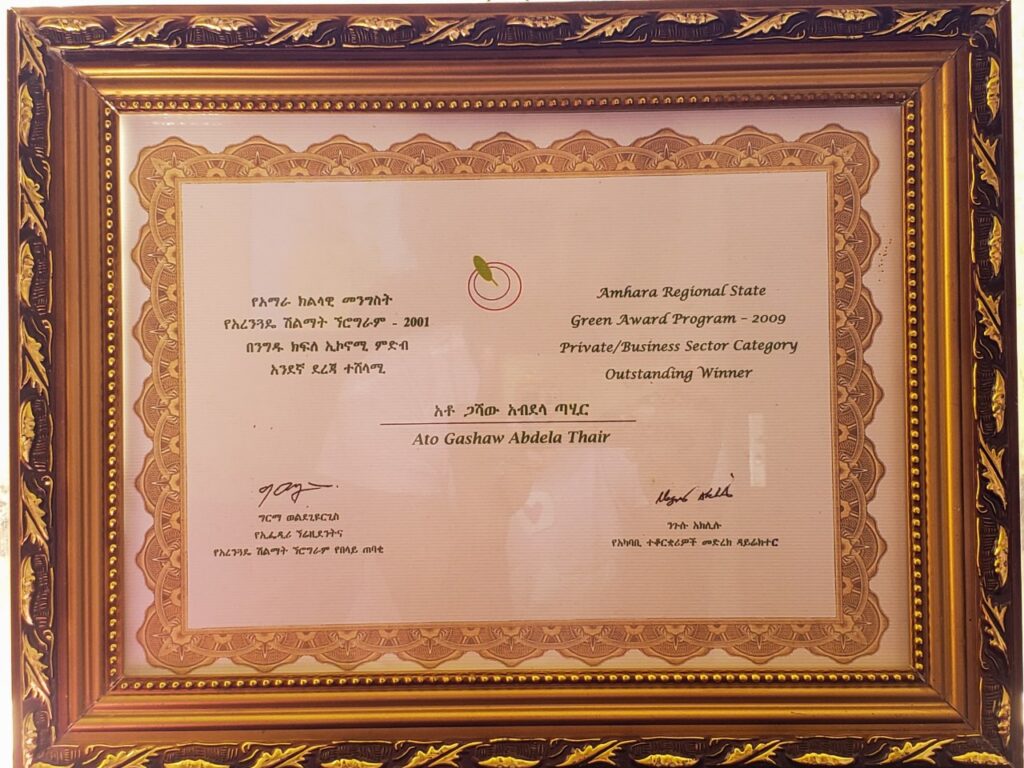 የአማራ ክልላዊ መንግስት
የአረንጓዴ ሽልማት ኘሮግራም - 2001
በንግዱ ክፍለ ኢኮኖሚ ምድብ
አንደኛ ደረጃ ተሸላሚ
Amhara Regional State
Green Award Program - 2009
Private/Business Sector Category
Outstanding Winner
አቶ ጋሻው አብደላ ጣሂር
Ato Gashaw Abdela Thair
ግርማ ወልደጊዮርጊስ
የኢ.ፌ.ዲ.ሪ ኘሬዚደንትና
የአረንጓዴ ሽልማት ኘሮግራም የበላይ ጠባቂ
ንጉሱ አክሊሉ
የአካባቢ ተቆርቋሪዎች መድረክ ዳይሬክተር